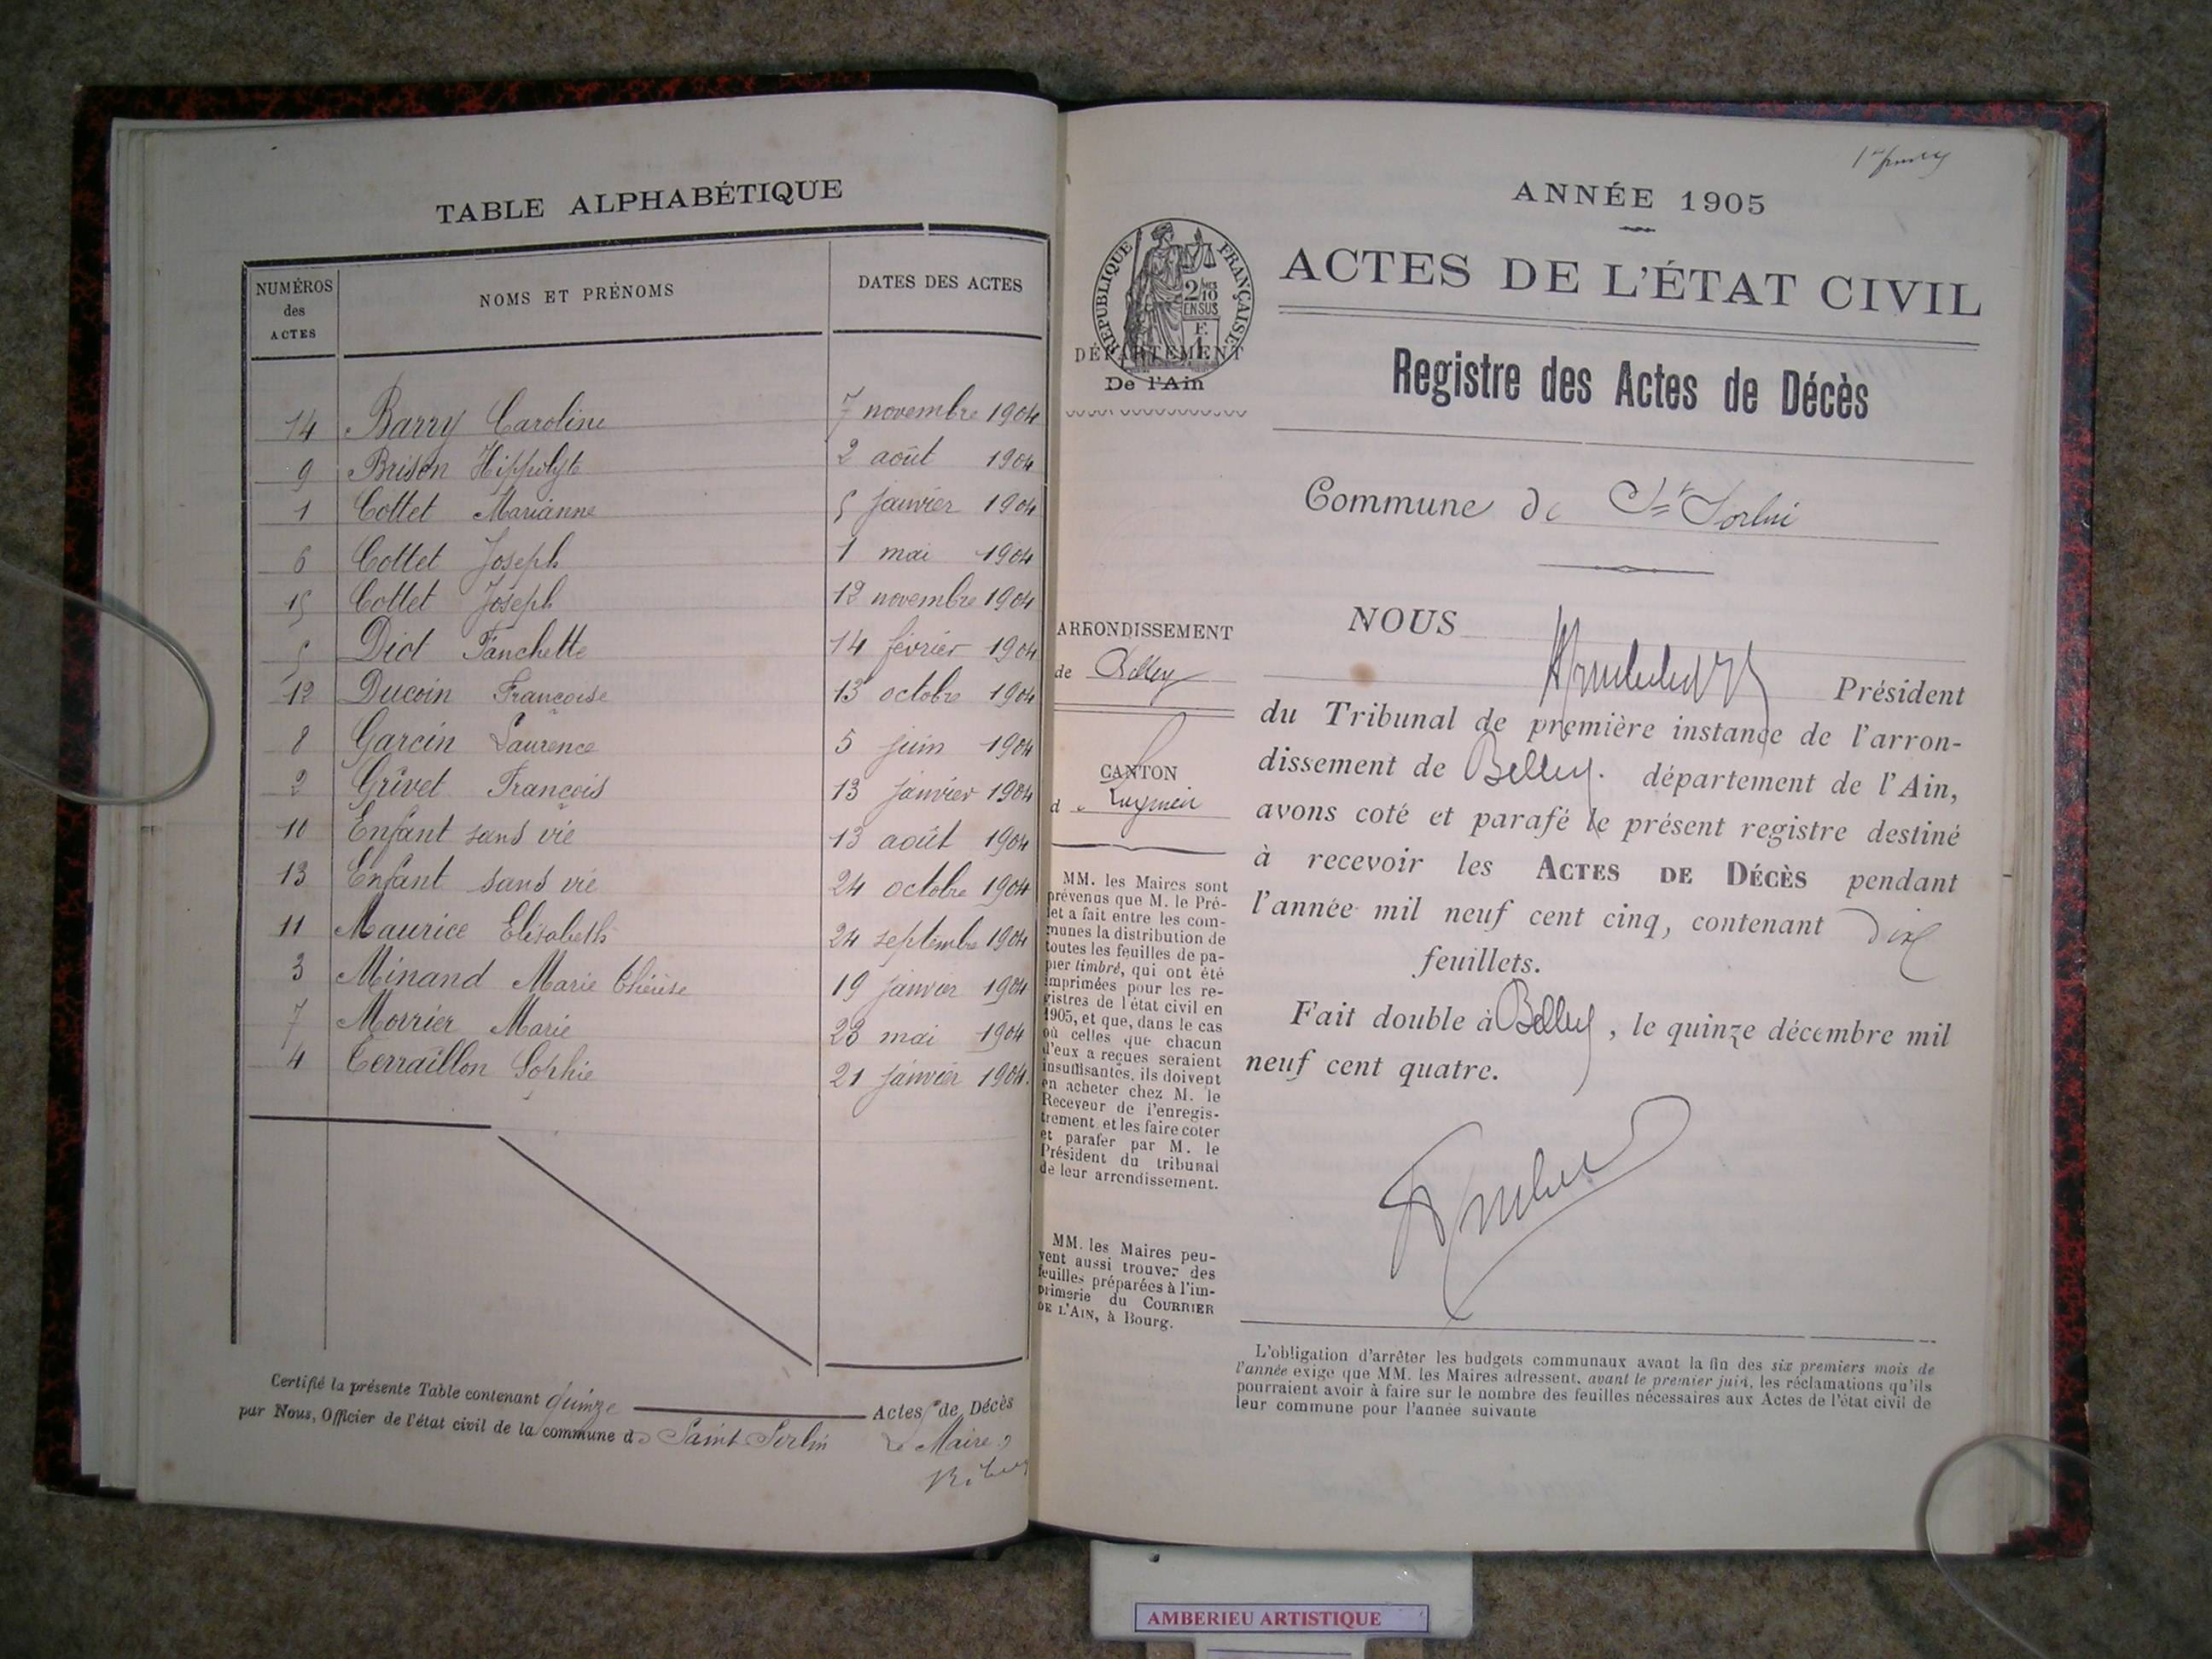 TABLE ALPHABÉTIQUE
NUMÉROS des ACTES
NOMS ET PRÉNOMS
DATES DES ACTES
14 Barry Caroline 7 novembre 1904
9 Brison Hippolyte 2 août 1904
1 Cottet Marianne 5 janvier 1904
6 Cottet Joseph 1 mai 1904
15 Cottet Joseph 12 novembre 1904
5 Diot Fanchette 14 février 1904
12 Ducoin Françoise 13 octobre 1904
8 Garcin Laurence 5 juin 1904
2 Grivet François 13 janvier 1904
10 Enfant sans vie 13 août 1904
13 Enfant sans vie 24 octobre 1904
11 Maurice Elisabeth 24 septembre 1904
3 Minand Marie Thérèse 19 janvier 1904
7 Morrier Marie 23 mai 1904
4 Terraillon Sophie 21 janvier 1904.
Certifié la présente Table contenant quinze Actes de Décès
par Nous, Officier de l'état civil de la commune de Saint Sorlin
Le Maire
ANNÉE 1905
ACTES DE L'ÉTAT CIVIL
RÉPUBLIQUE FRANÇAISE
2/10 EN SUS
F.
DÉPARTEMENT
De l'Ain
Registre des Actes de Décès
Commune de St Sorlin
ARRONDISSEMENT
de Belley
CANTON
de
MM. les Maires sont
prévenus que M. le Pré-
fet a fait entre les com-
munes la distribution de
toutes les feuilles de pa-
pier timbré, qui ont été
imprimées pour les re-
gistres de l'état civil en
1905, et que, dans le cas
où celles que chacun
d'eux a reçues seraient
insuffisantes, ils doivent
en acheter chez M. le
Receveur de l'enregis-
trement et les faire coter
et parafer par M. le
Président du tribunal
de leur arrondissement.
MM. les Maires peu-
vent aussi trouver des
feuilles préparées à l'im-
primerie du COURRIER
DE L'AIN, à Bourg.
NOUS
Président
du Tribunal de première instance de l'arron-
dissement de Belley. département de l'Ain,
avons coté et parafé le présent registre destiné
à recevoir les ACTES DE DÉCÈS pendant
l'année mil neuf cent cinq, contenant dix
feuillets.
Fait double à Belley, le quinze décembre mil
neuf cent quatre.
L'obligation d'arrêter les budgets communaux avant la fin des six premiers mois de
l'année exige que MM. les Maires adressent, avant le premier juin, les réclamations qu'ils
pourraient avoir à faire sur le nombre des feuilles nécessaires aux Actes de l'état civil de
leur commune pour l'année suivante
AMBERIEU ARTISTIQUE